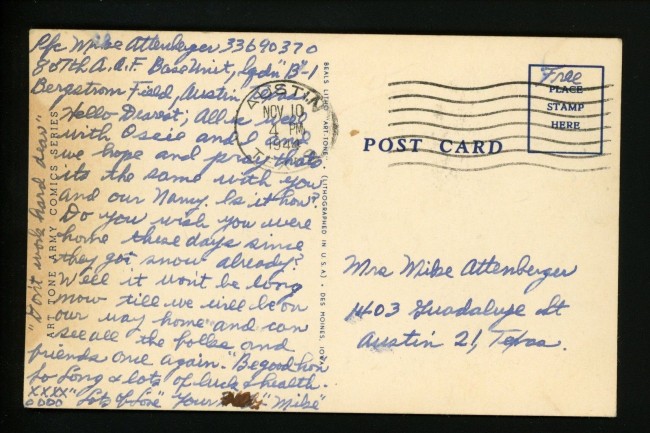 Pfc Mike Attenberger 33690370
807th A.A.F. Base Unit, Sqdn "B"-1
Bergstrom Field, Austin,
Hello Dearest; All is well
with Ossie and I
we hope and pray thats
its the same with you
and our Namy. Is it how?
Do you wish you were
home these days since
they got snow already?
Well it won't be long
now till we will be on
our way home and can
see all the folks and
friends once again. "Be good hon
So Long & lots of luck & health.
XXXX" Lots of Love" Your "Mike"
OOOO
"Don't work hard dear"
ART TONE ARMY COMICS SERIES
BEALS LITHO "ART-TONE" (LITHOGRAPHED IN U.S.A.) • DES MOINES, IOWA
AUSTIN
NOV 10
4 PM
1944
Free
PLACE
STAMP
HERE
POST CARD
Mrs Mike Attenberger
1403 Guadalupe St
Austin 21, Texas.